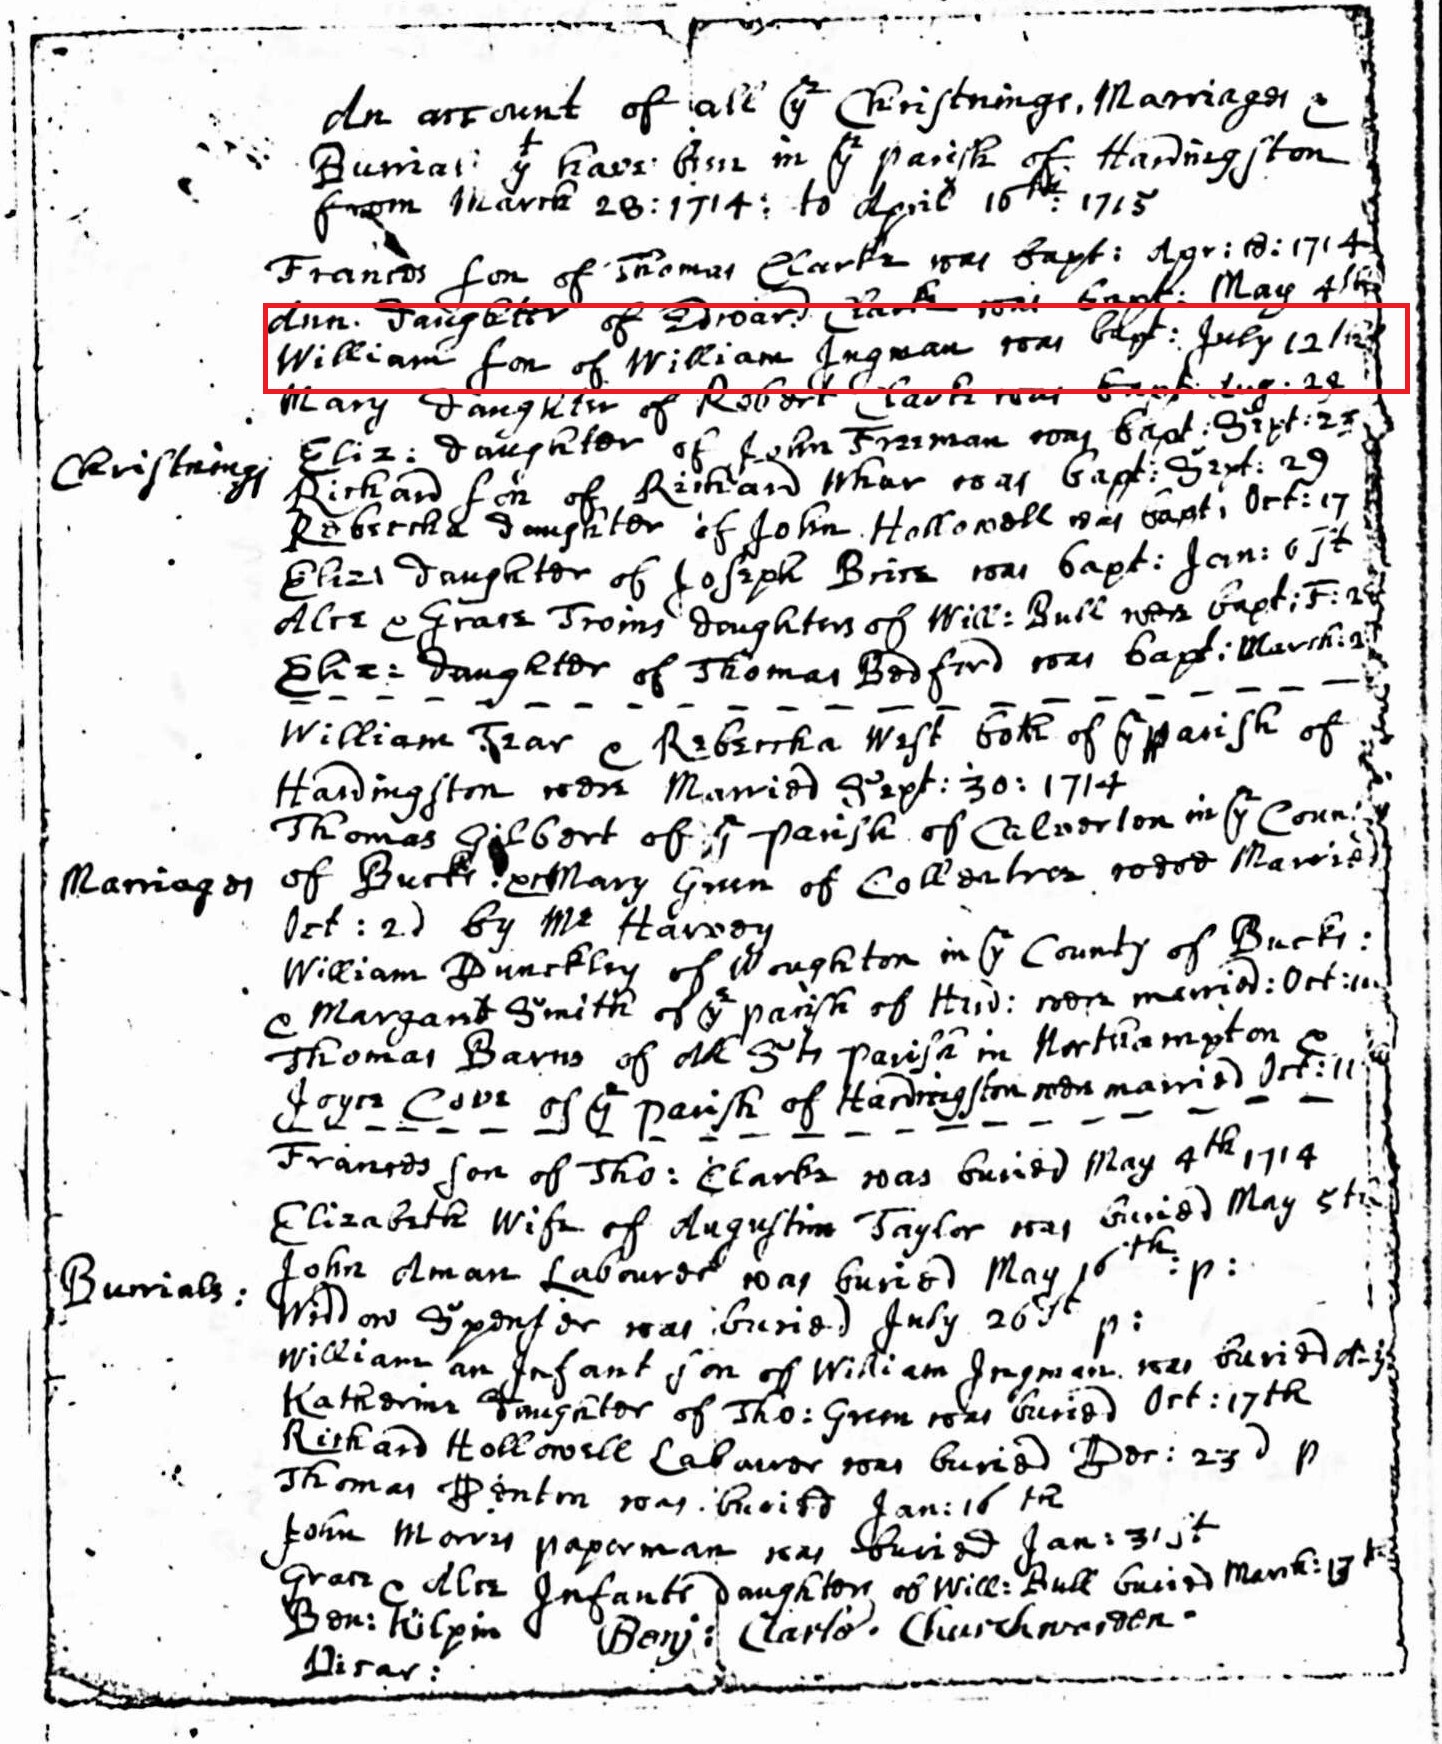 An account of all ye Christnings, Marriages &
Burrias yt have been in ye parish of Hardingston
from March 28: 1714: to April 16th: 1715
Frances son of Thomas Clarke was bapt: Apr: 18: 1714
Ann Daughter of Edward Clark was bapt: May 4th
William son of William Ingman was bapt: July 12th
Mary daughter of Robert Clarke was bapt: Aug: 28
Christnings
Eliz: daughter of John Freeman was bapt: Sept: 23
Richard son of Richard was bapt: Sept: 29
Rebeccha daughter of John Hollowell was bapt: Oct: 17
Eliz: daughter of Joseph Brice was bapt: Jan: 6st
Alce & Grace Twins daughters of Will: Bull were bapt: F:
Eliz: daughter of Thomas Bedford was bapt: March:
William Tear & Rebeccha West both of ye parish of
Hardingston were Married Sept: 30: 1714
Thomas Gilbert of ye parish of Calverton in ye Coun
Marriages
of Bucks & Mary Green of were Married
Oct: 2d by Mr Harvey
William Dunckley of Woughton in ye County of Bucks:
& Margaret Smith of ye parish of Har: were married: Oct:
Thomas Barns of All Sts parish in Northampton &
Joyce Cove of ye parish of Hardingston were married Oct: 11
Frances son of Tho: Clarke was buried May 4th 1714
Elizabeth Wife of Augustin Taylor was buried May 5th
Burrials:
John Aman Labourer was buried May 16th: p:
Widdow Spenser was buried July 26st p:
William an Infant son of William Ingman was buried
Katherine Daughter of Tho: Green was buried Oct: 17th
Richard Hollowell Labourer was buried Dec: 23d p
Thomas Denton was buried Jan: 16th
John Morris paperman was buried Jan: 31st
Grace & Alce Infants Daughters of Will: Bull buried March: 13th
Ben: Kilpin Benj: Clarke Churchwarden
Vicar: